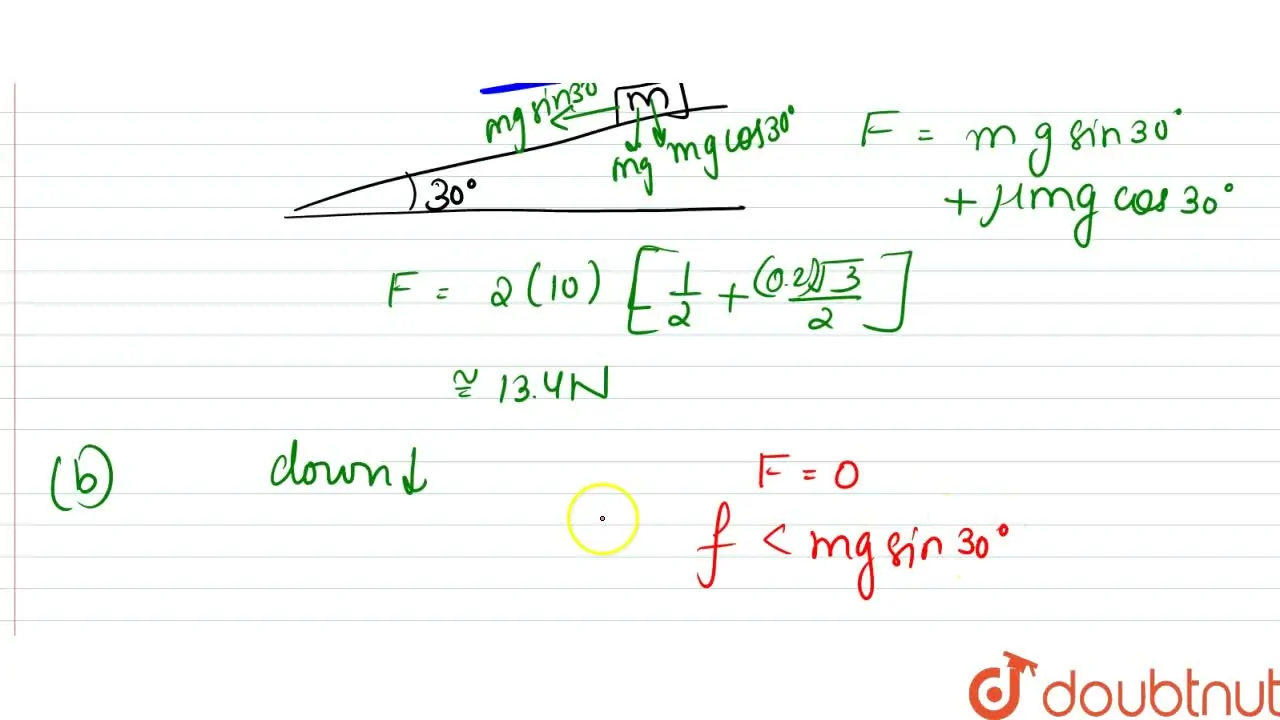 m
mg sin30
mg
mg cos30°
30°
F = mg sin30°
+ μmg cos30°
F = 2(10) [1/2 + (0.2)√3/2]
≅ 13.4N
(b) down↓
F = 0
f < mg sin30°
doubtnut